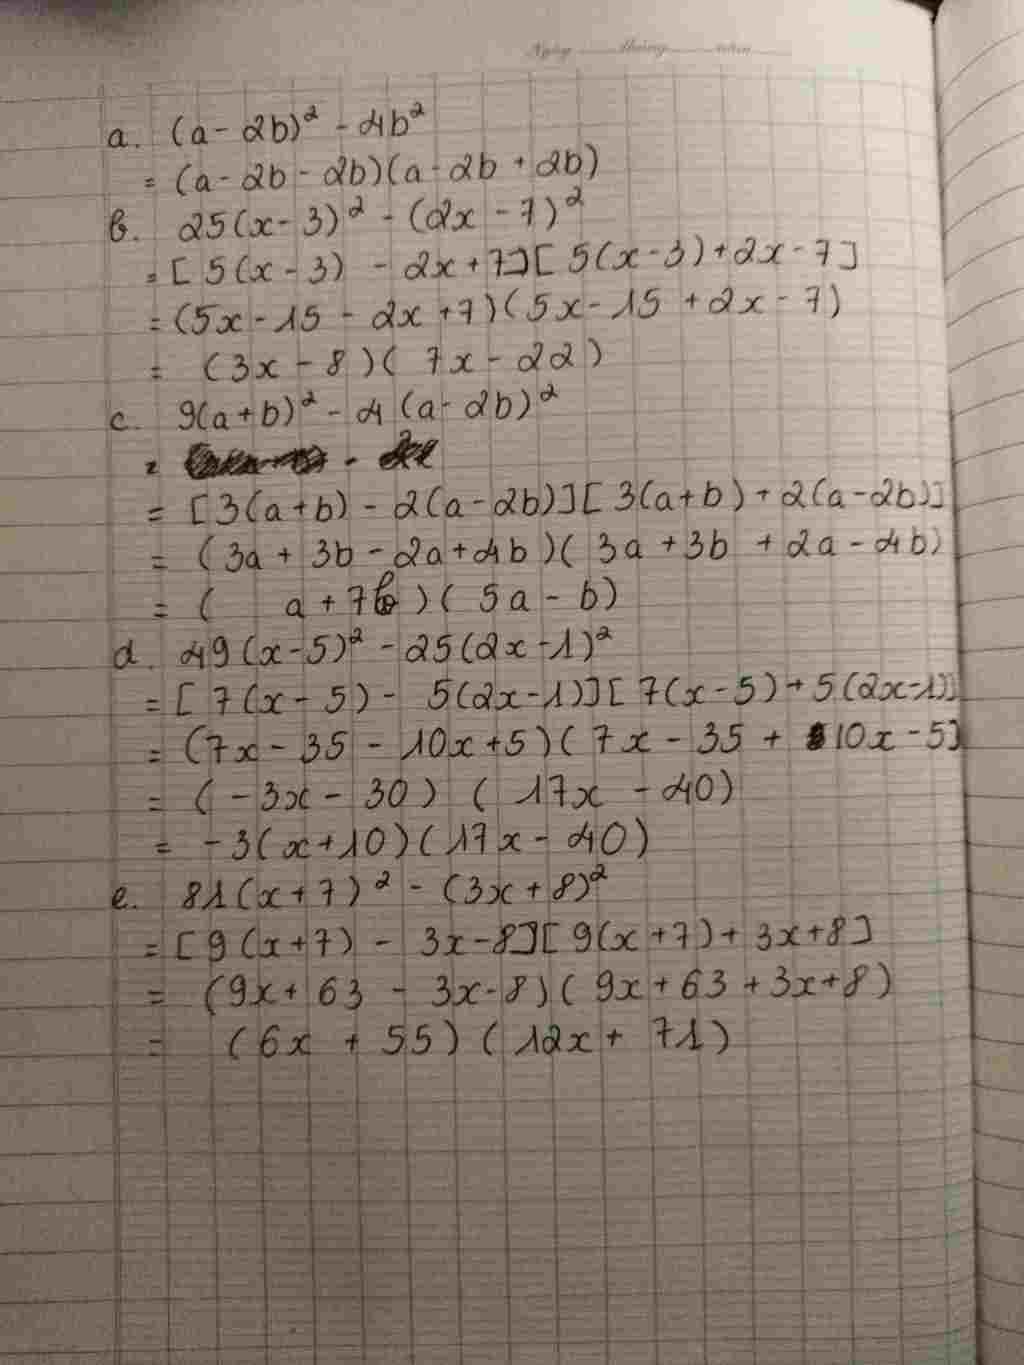 Ngày tháng năm
a. (a - 2b)² - 4b²
= (a - 2b - 2b)(a - 2b + 2b)
b. 25(x - 3)² - (2x - 7)²
= [ 5(x - 3) - 2x + 7][ 5(x - 3) + 2x - 7]
= (5x - 15 - 2x + 7)(5x - 15 + 2x - 7)
= (3x - 8)( 7x - 22)
c. 9(a + b)² - 4(a - 2b)²
= [3(a + b) - 2(a - 2b)][ 3(a + b) + 2(a - 2b)]
= (3a + 3b - 2a + 4b)( 3a + 3b + 2a - 4b)
= ( a + 7b )( 5a - b)
d. 49(x - 5)² - 25(2x - 1)²
= [ 7(x - 5) - 5(2x - 1)][ 7(x - 5) + 5(2x - 1)]
= (7x - 35 - 10x + 5)( 7x - 35 + 10x - 5]
= ( - 3x - 30) ( 17x - 40)
= - 3(x + 10)(17x - 40)
e. 81(x + 7)² - (3x + 8)²
= [9(x + 7) - 3x - 8][9(x + 7) + 3x + 8]
= (9x + 63 - 3x - 8)( 9x + 63 + 3x + 8)
= (6x + 55)( 12x + 71)